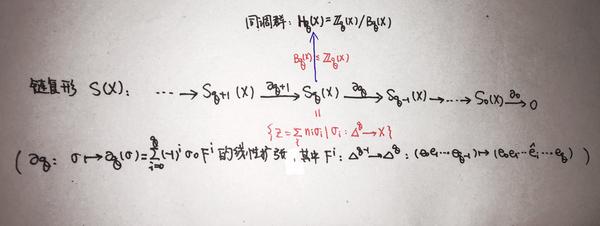 同调群: H_q(X) = Z_q(X) / B_q(X)
B_q(X) ⊂ Z_q(X)
链复形 S(X): ⋯ → S_{q+1}(X) \xrightarrow{∂_{q+1}} S_q(X) \xrightarrow{∂_q} S_{q-1}(X) → ⋯ → S_0(X) \xrightarrow{∂_0} 0
{z = Σ n_iσ_i | σ_i: Δ^q → X}
(∂_q: σ ↦ ∂_q(σ) = \sum_{i=0}^{q} (-1)^i σ∘F^i 的线性扩张, 其中 F^i: Δ^{q-1} → Δ^q: (e_0e_1⋯e_{q-1}) ↦ (e_0e_1⋯ê_i⋯e_q))